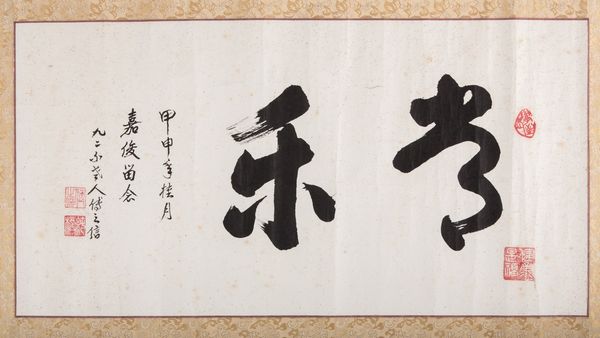 常乐
甲申年桂月
嘉俊留念
九二不老人傅之信